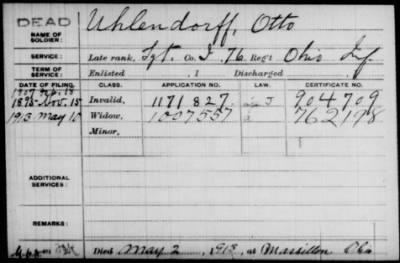 DEAD
NAME OF SOLDIER: Uhlendorff, Otto
SERVICE: Late rank, Sgt. Co. I, 76 Reg't Ohio Inf.
TERM OF SERVICE: Enlisted , 1 Discharged
DATE OF FILING. CLASS. APPLICATION NO. LAW. CERTIFICATE NO.
1907
1895 Nov. 15 Invalid, 1171827 J 904709
1913 May 15 Widow, 1007557 762178
Minor,
ADDITIONAL SERVICES:
REMARKS:
Died May 2, 1913, at Massillon Ohio